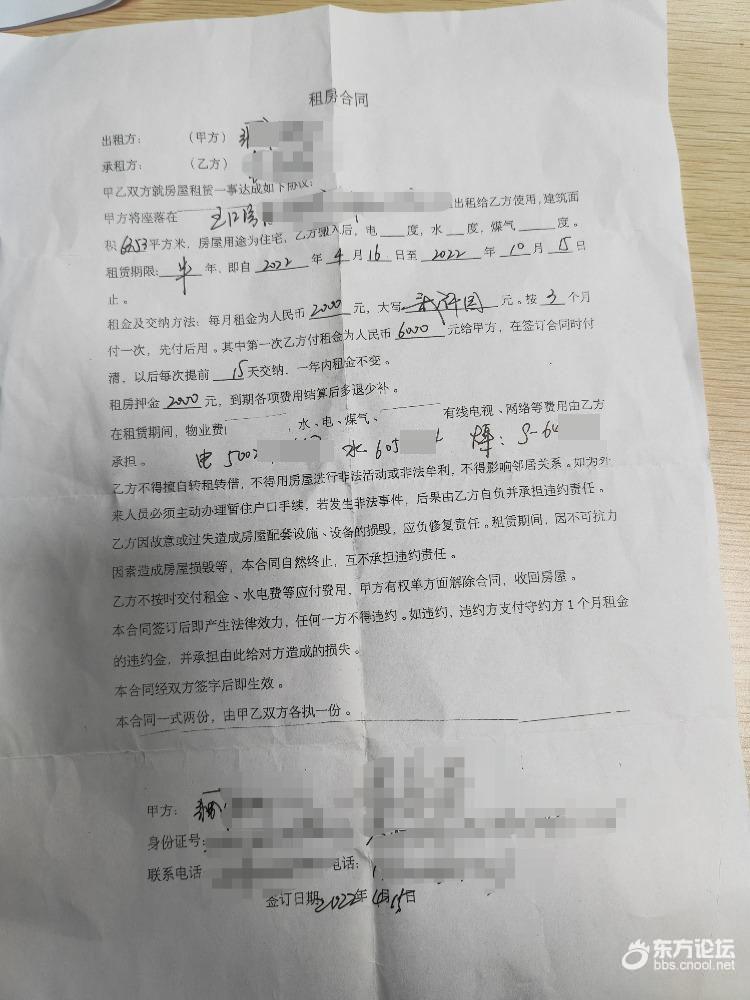 租房合同
出租方： （甲方）
承租方： （乙方）
甲乙双方就房屋租赁一事达成如下协议：
甲方将座落在 出租给乙方使用，建筑面
积 平方米，房屋用途为住宅，乙方搬入后，电____度，水____度，煤气____度。
租赁期限： 半 年，即自 2022 年 4 月 16 日至 2022 年 10 月 15 日
止。
租金及交纳方法：每月租金为人民币 2000 元，大写 元。按 3 个月
付一次，先付后用。其中第一次乙方付租金为人民币 6000 元给甲方，在签订合同时付
清，以后每次提前 15 天交纳，一年内租金不变。
租房押金 2000 元，到期各项费用结算后多退少补。
在租赁期间，物业费 、水、电、煤气、 有线电视、网络等费用由乙方
承担。 电 500 水 605 煤：5-6
乙方不得擅自转租转借，不得用房屋进行非法活动或非法牟利，不得影响邻居关系。如为外
来人员必须主动办理暂住户口手续，若发生非法事件，后果由乙方自负并承担违约责任。
乙方因故意或过失造成房屋配套设施、设备的损毁，应负修复责任。租赁期间，因不可抗力
因素造成房屋损毁等，本合同自然终止，互不承担违约责任。
乙方不按时交付租金、水电费等应付费用，甲方有权单方面解除合同，收回房屋。
本合同签订后即产生法律效力，任何一方不得违约。如违约、违约方支付守约方1个月租金
的违约金，并承担由此给对方造成的损失。
本合同经双方签字后即生效。
本合同一式两份，由甲乙双方各执一份。
甲方：
身份证号：
联系电话 电话：
签订日期 2022年 4月15日
东方论坛
bbs.cnool.net